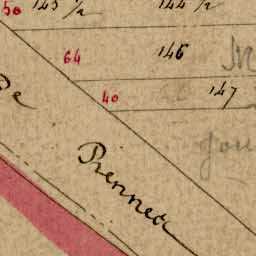 50 143 1/2 144 1/2
64 146
40 147
De
Rennea